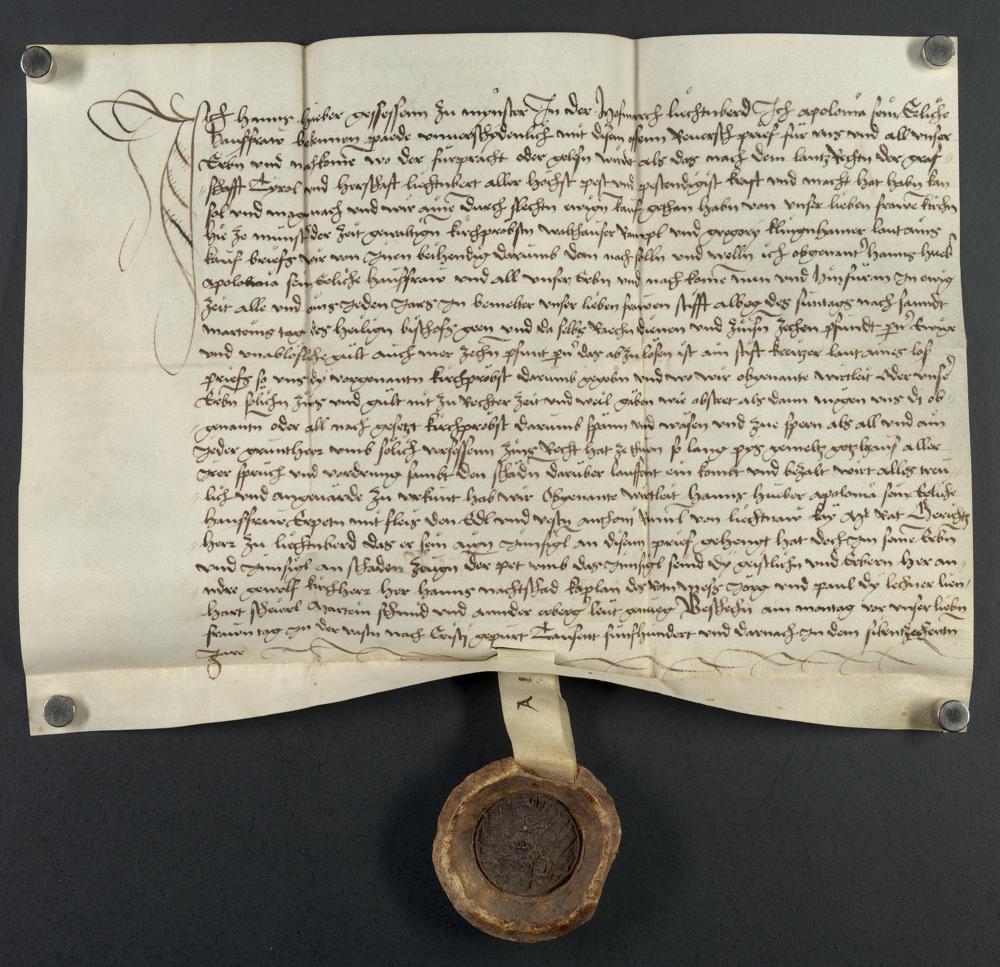 Ich Hanns Hueber gesessenn zu munster In der Hofmarch liechtnberd Ich apolonia sein Eeliche
hausfraw bekennen paide unverschydenlich mit disem ofenn Reversch prief fur uns und all unser
Erbn und nachkome wo der furpracht oder gelesn wirdt als das nach dem lantz Rechtn der graf
schafft Tyrol und herschafft liechtnbert aller hochst pest und pestendigist kraft und macht hat habn kan
sol und mag nach und wir aine durch slechtn ewign kauf gethan habn von unser lieben frawe kirchn
hie ze munster der zeit gewaltign kirchprobstn walthauser Rampl und gregorg klingnhamer laut ains
kauf briefs wir von Inen beihendig darumb dem nach solln und welln ich obgenant Hanns Hueber
apolonia sein Eeliche hausfraw und all unser Erbn und nachkome nun und hinfuran In ewig
zeit alle und ains Jeden Jars In bemelter unser lieben frawen stifft albeg des suntags nach sanndt
marteins tag des heilign bischofs geen und da selbs Raichn dienen und zinsn zechen pfundt perner Ewige
und unablosliche gult auch mer zehn pfunt perner das abzulosen ist am stift kreutzer laut aines los
briefs so uns dy vorgenantn kirchprobst darumb gegebn und wo wir obgenante wirtleut oder unser
Erbn solichn zins und gult nit zu Rechter zeit und weil gaben wie obstet als dann mogen uns di ob
genantn oder all nach gesetzt kirchprobst darumb spann und wasen und zue speren als all und ain
Jeder gruntherr umb solich versessenn zins Recht hat ze thuen so lang pys gemeltz gotzhaus aller
Irer spruch und vordrung sambt den schadn daruber lauffent ein kombt und bezalt wirt alles treu
lich und angevarde zu urkunt hab wir Obgenante wirtleut Hanns Hueber apolonia sein Eeliche
hausfraw Erpetn mit fleis den Edl und vestn anthoni von liechtnaw kay Mt Rat Gerichtz
herr zu liechtnberd das er sein aigen Innsigl an disem prief gehengt hat doch Im seine Erbn
und Innsigl an schaden zeugn der pet umb das Innsigl seind dy geistlichn und Erbern her an
ndre gewolf kirchherr her hanns nachtschad kaplan des mess Jorg und paul dy lechner lien
hart scheierl Martein schmid und annder erberg leut genueg Beschechn am montag vor unser liebn
frawn tag In der vastn nach Cristi gepurt Tausent funfhundert und darnach In dem sibenzechentn
Jare